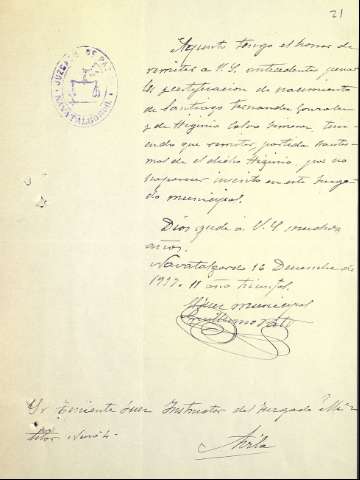 21
JUZGADO DE PAZ
NAVATALGORDO
Adjunto tengo el honor de
remitir a V.S. antecedentes penales
certificacion de nacimiento
de Santiago Fernandez Gonzalez
y de Higinio Calvo Jimenez,
que remitir partida
del dicho Higinio, por no
inscrito en este Juzga-
do municipal.
Dios gude á V.S. muchos
años.
Navatalgordo 16 Diciembre de
1937. II año triunfal.
Juez municipal
Sr Teniente Juez Instructor del Juzgado Mi-
litar
Avila